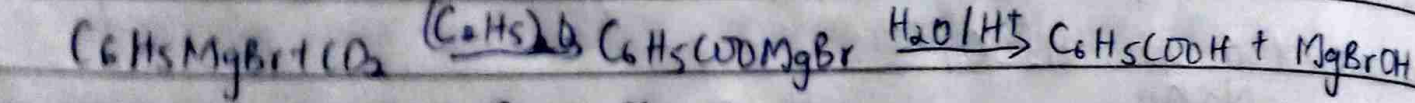 C6H5MgBr + CO2 (C2H5)2O→ C6H5COOMgBr H2O/H+→ C6H5COOH + MgBrOH